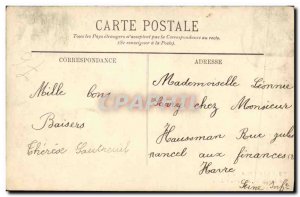 CARTE POSTALE
Tous les Pays étrangers n'acceptent pas la Correspondance au recto.
(Se renseigner à la Poste).
CORRESPONDANCE
ADRESSE
Mille bons
Baisers
Thérèse Gautreuil
Mademoiselle Léonnie
chez Monsieur
Haussman Rue
aux finances
Havre
Seine Infre